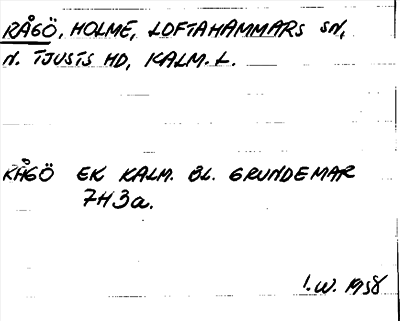 RÅGÖ, HOLME, LOFTAHAMMARS SN,
N. TJUSTS HD, KALM. L.
KÅGÖ EK KALM. BL. GRUNDEMAR
7H3a.
I.W. 1958